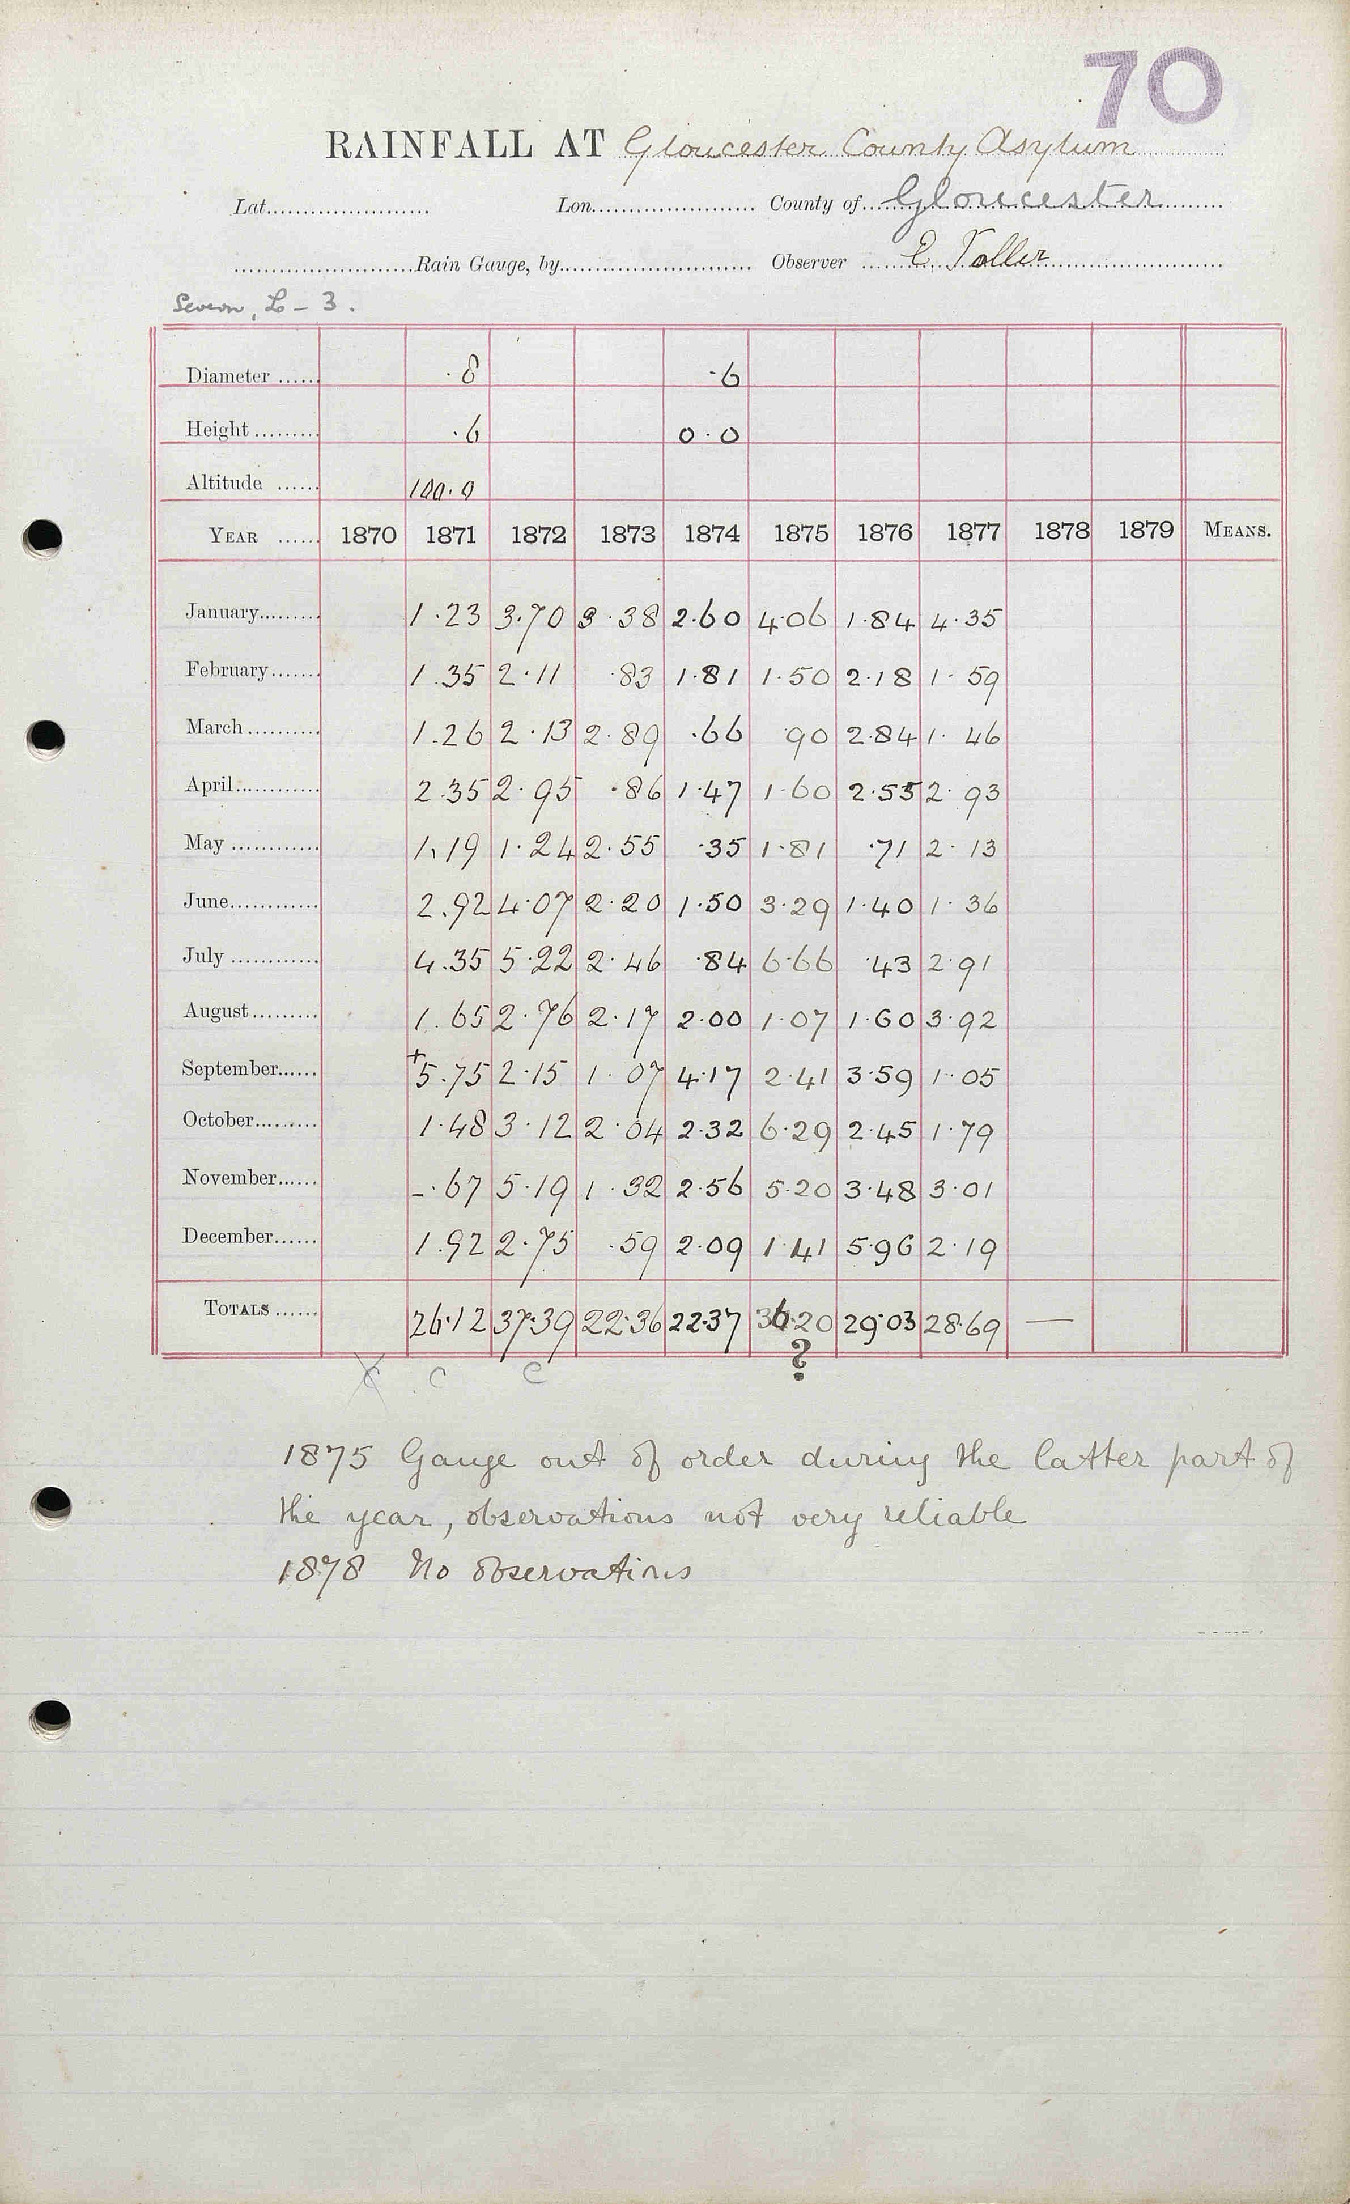 70
RAINFALL AT Gloucester County Asylum
Lat. Lon. County of Gloucester
Rain Gauge, by Observer E Toller
Severn, L - 3.
Diameter ·8 ·6
Height ·6 0·0
Altitude 100·0
YEAR 1870 1871 1872 1873 1874 1875 1876 1877 1878 1879 MEANS.
January 1·23 3·70 3·38 2·60 4·06 1·84 4·35
February 1·35 2·11 ·83 1·81 1·50 2·18 1·59
March 1·26 2·13 2·89 ·66 ·90 2·84 1·46
April 2·35 2·95 ·86 1·47 1·60 2·55 2·93
May 1·19 1·24 2·55 ·35 1·81 ·71 2·13
June 2·92 4·07 2·20 1·50 3·29 1·40 1·36
July 4·35 5·22 2·46 ·84 6·66 ·43 2·91
August 1·65 2·76 2·17 2·00 1·07 1·60 3·92
September +5·75 2·15 1·07 4·17 2·41 3·59 1·05
October 1·48 3·12 2·04 2·32 6·29 2·45 1·79
November -·67 5·19 1·32 2·56 5·20 3·48 3·01
December 1·92 2·75 ·59 2·09 1·41 5·96 2·19
TOTALS 26·12 37·39 22·36 22·37 36·20 29·03 28·69 —
C C C ?
1875 Gauge out of order during the latter part of
the year, observations not very reliable
1878 No observations